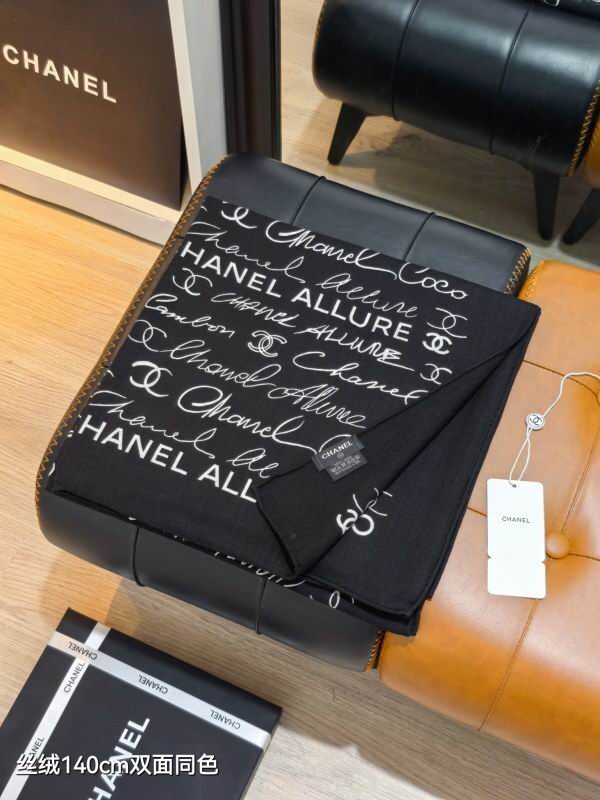 CHANEL
Chanel Coco
Chanel Allure
HANEL ALLURE
CHANEL ALLURE
Cambon Chanel
Chanel Allure
Chanel
Chanel Al
HANEL ALL
CHANEL
CHANEL
CHANEL
CHANEL
CHANEL
CHANEL
CHANEL
丝绒140cm双面同色